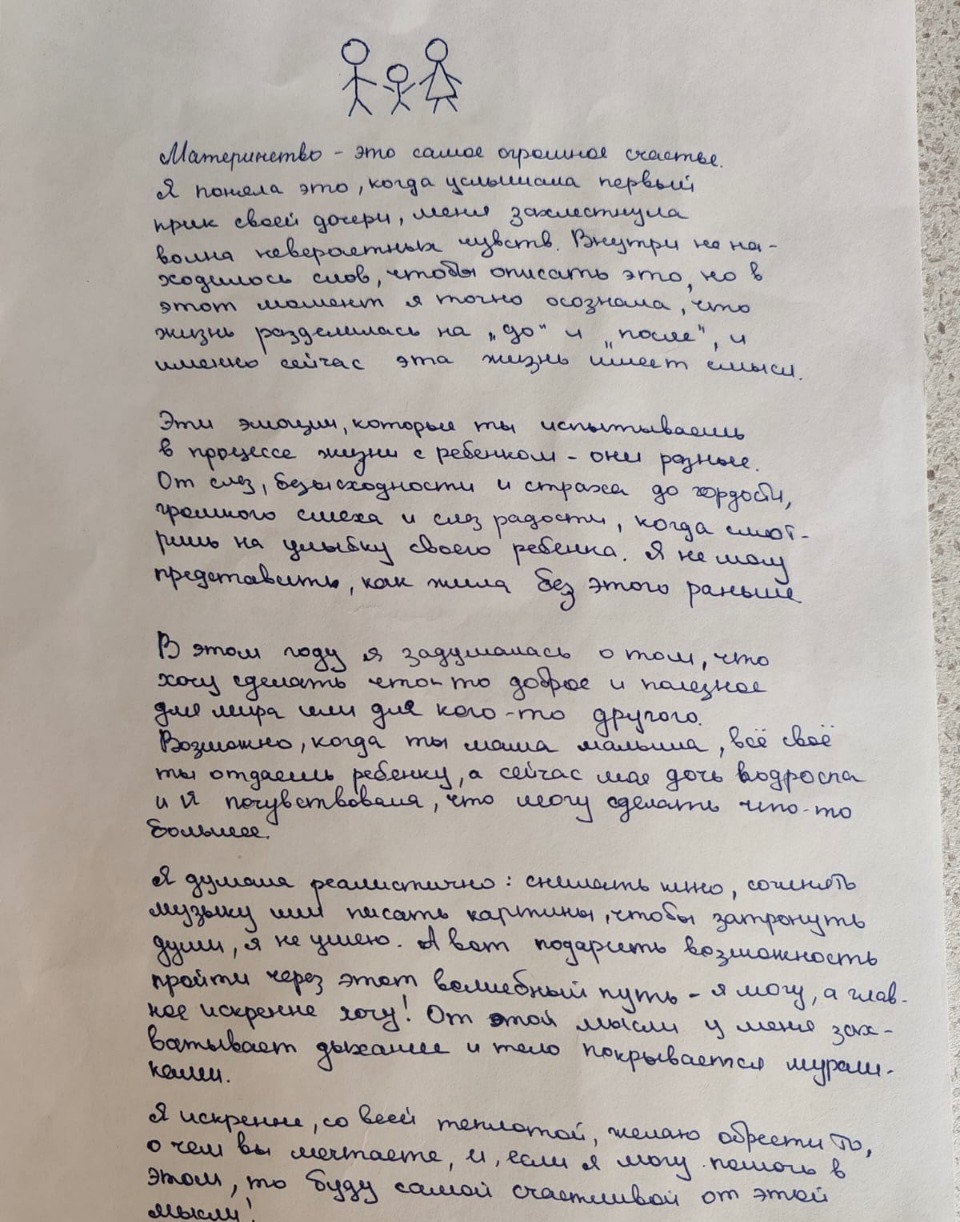 Материнство - это самое огромное счастье.
Я поняла это, когда услышала первый
крик своей дочери, меня захлестнула
волна невероятных чувств. Внутри не на-
ходилось слов, чтобы описать это, но в
этот момент я точно осознала, что
жизнь разделилась на „до" и „после", и
именно сейчас эта жизнь имеет смысл.
Эти эмоции, которые ты испытываешь
в процессе жизни с ребенком - они разные.
От слез, безысходности и страха до гордости,
громкого смеха и слез радости, когда смот-
ришь на улыбку своего ребенка. Я не могу
представить, как жила без этого раньше
В этом году я задумалась о том, что
хочу сделать что-то доброе и полезное
для мира или для кого-то другого.
Возможно, когда ты мама малыша, всё своё
ты отдаешь ребенку, а сейчас моя дочь подросла
и я почувствовала, что могу сделать что-то
большее.
Я думала реалистично: снимать кино, сочинять
музыку или писать картины, чтобы затронуть
души, я не умею. А вот подарить возможность
пройти через этот волшебный путь - я могу, а глав-
ное искренне хочу! От этой мысли у меня зах-
ватывает дыхание и тело покрывается мураш-
ками.
Я искренне, со всей теплотой, желаю обрести то,
о чем вы мечтаете, и, если я могу помочь в
этом, то буду самой счастливой от этой
мысли!